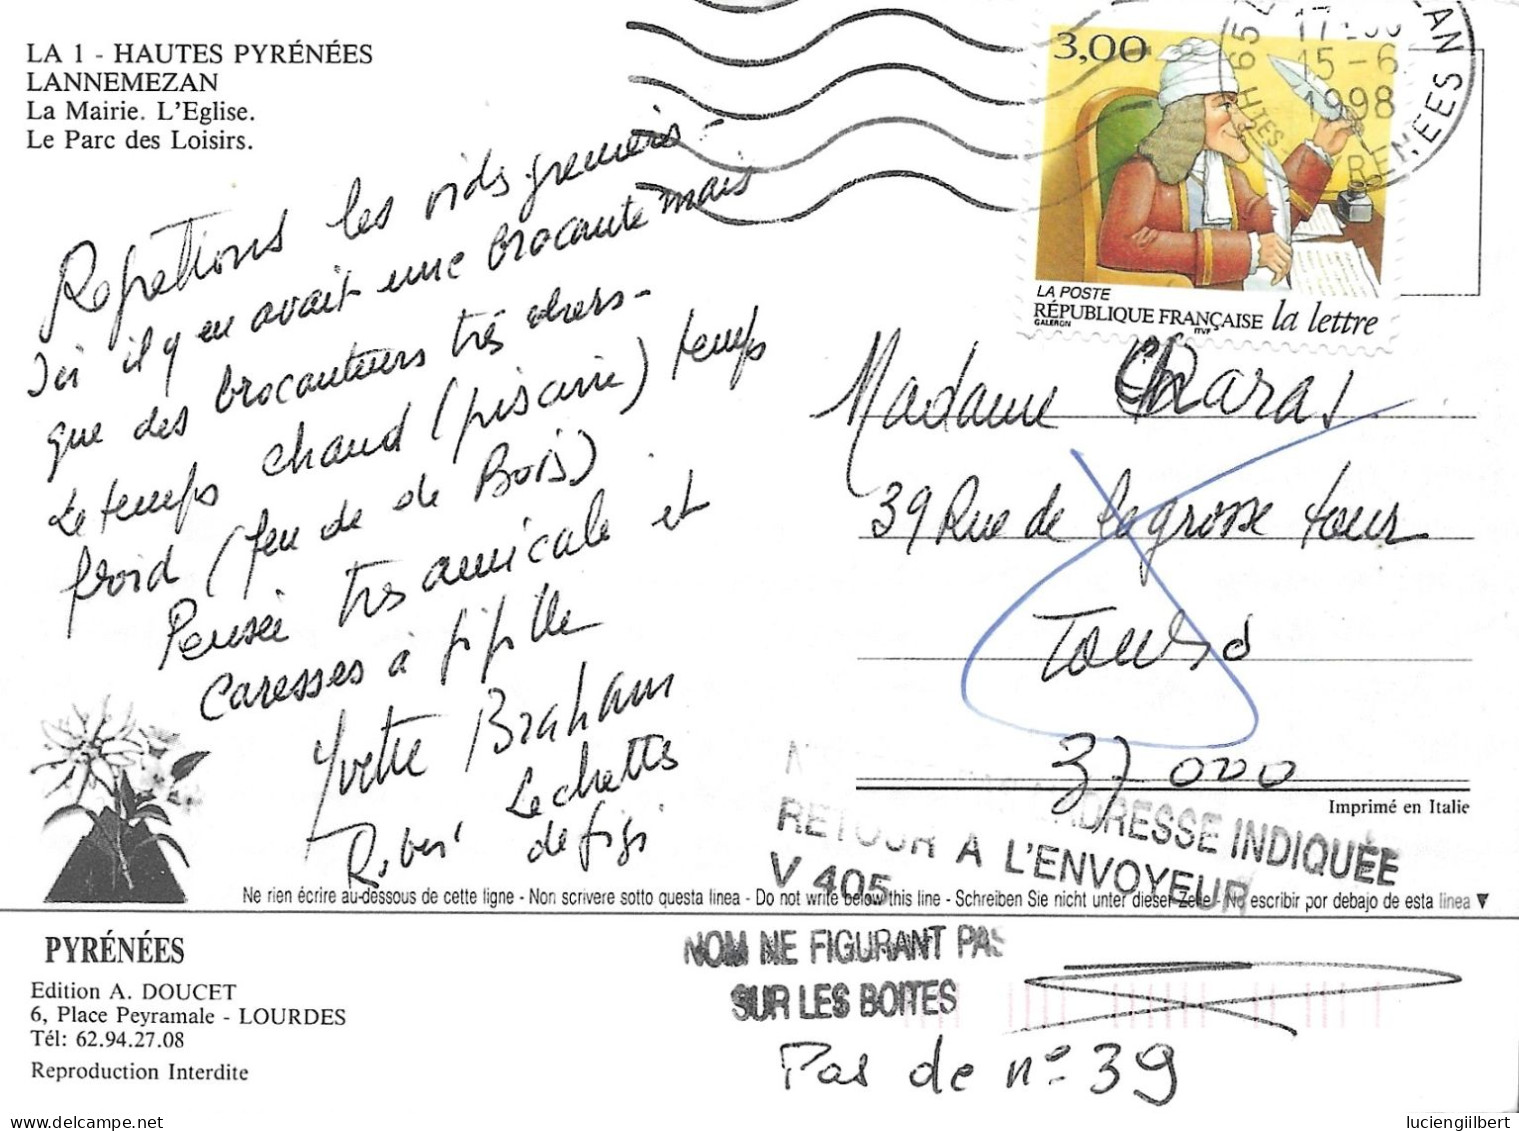 LA 1 - HAUTES PYRÉNÉES
LANNEMEZAN
La Mairie. L'Eglise.
Le Parc des Loisirs.
les vids-greniers -
Ici il y en avait une brocante mais
que des brocanteurs très chers -
Le temps chaud (piscine) temps
froid (feu de de Bois)
Pensée très amicale et
Caresses à pipille
Yvette Braham
Lechatts
defigi
3,00
LA POSTE
RÉPUBLIQUE FRANÇAISE la lettre
GALERON ITVF
15-6
1998
Madame Charas
39 Rue de la grosse tour
Tours
37000
Imprimé en Italie
ADRESSE INDIQUÉE
RETOUR A L'ENVOYEUR
V 405
Ne rien écrire au-dessous de cette ligne - Non scrivere sotto questa linea - Do not write below this line - Schreiben Sie nicht unter dieser Zeile - No escribir por debajo de esta linea ▼
PYRÉNÉES
Edition A. DOUCET
6, Place Peyramale - LOURDES
Tél: 62.94.27.08
Reproduction Interdite
NOM NE FIGURANT PAS
SUR LES BOITES
Pas de n° 39
luciengilbert
delcampe.net